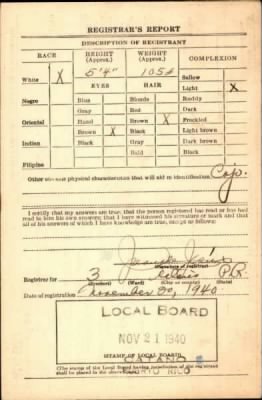 REGISTRAR'S REPORT
DESCRIPTION OF REGISTRANT
RACE HEIGHT (Approx.) WEIGHT (Approx.) COMPLEXION
5'4" 105#
White X Sallow
EYES HAIR Light X
Negro Blue Blonde Ruddy
Gray Red Dark
Oriental Hazel Brown X Freckled
Brown X Black Light brown
Indian Black Gray Dark brown
Bald Black
Filipino
Other obvious physical characteristics that will aid in identification
I certify that my answers are true; that the person registered has read or has had
read to him his own answers; that I have witnessed his signature or mark and that
all of his answers of which I have knowledge are true, except as follows:
(Signature of registrar)
Registrar for 3 P.R.
(Precinct) (Ward) (City or county) (State)
Date of registration November 20, 1940
LOCAL BOARD
NOV 21 1940
STAMP OF LOCAL BOARD
CATANO
PUERTO RICO
(The stamp of the Local Board having jurisdiction of the registrant
shall be placed in the above space)